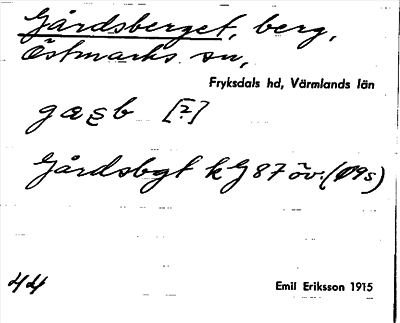 Gårdsberget, berg,
Östmarks sn,
Fryksdals hd, Värmlands län
[?]
Gårdsbgt k G 87 öv. (09s)
44
Emil Eriksson 1915